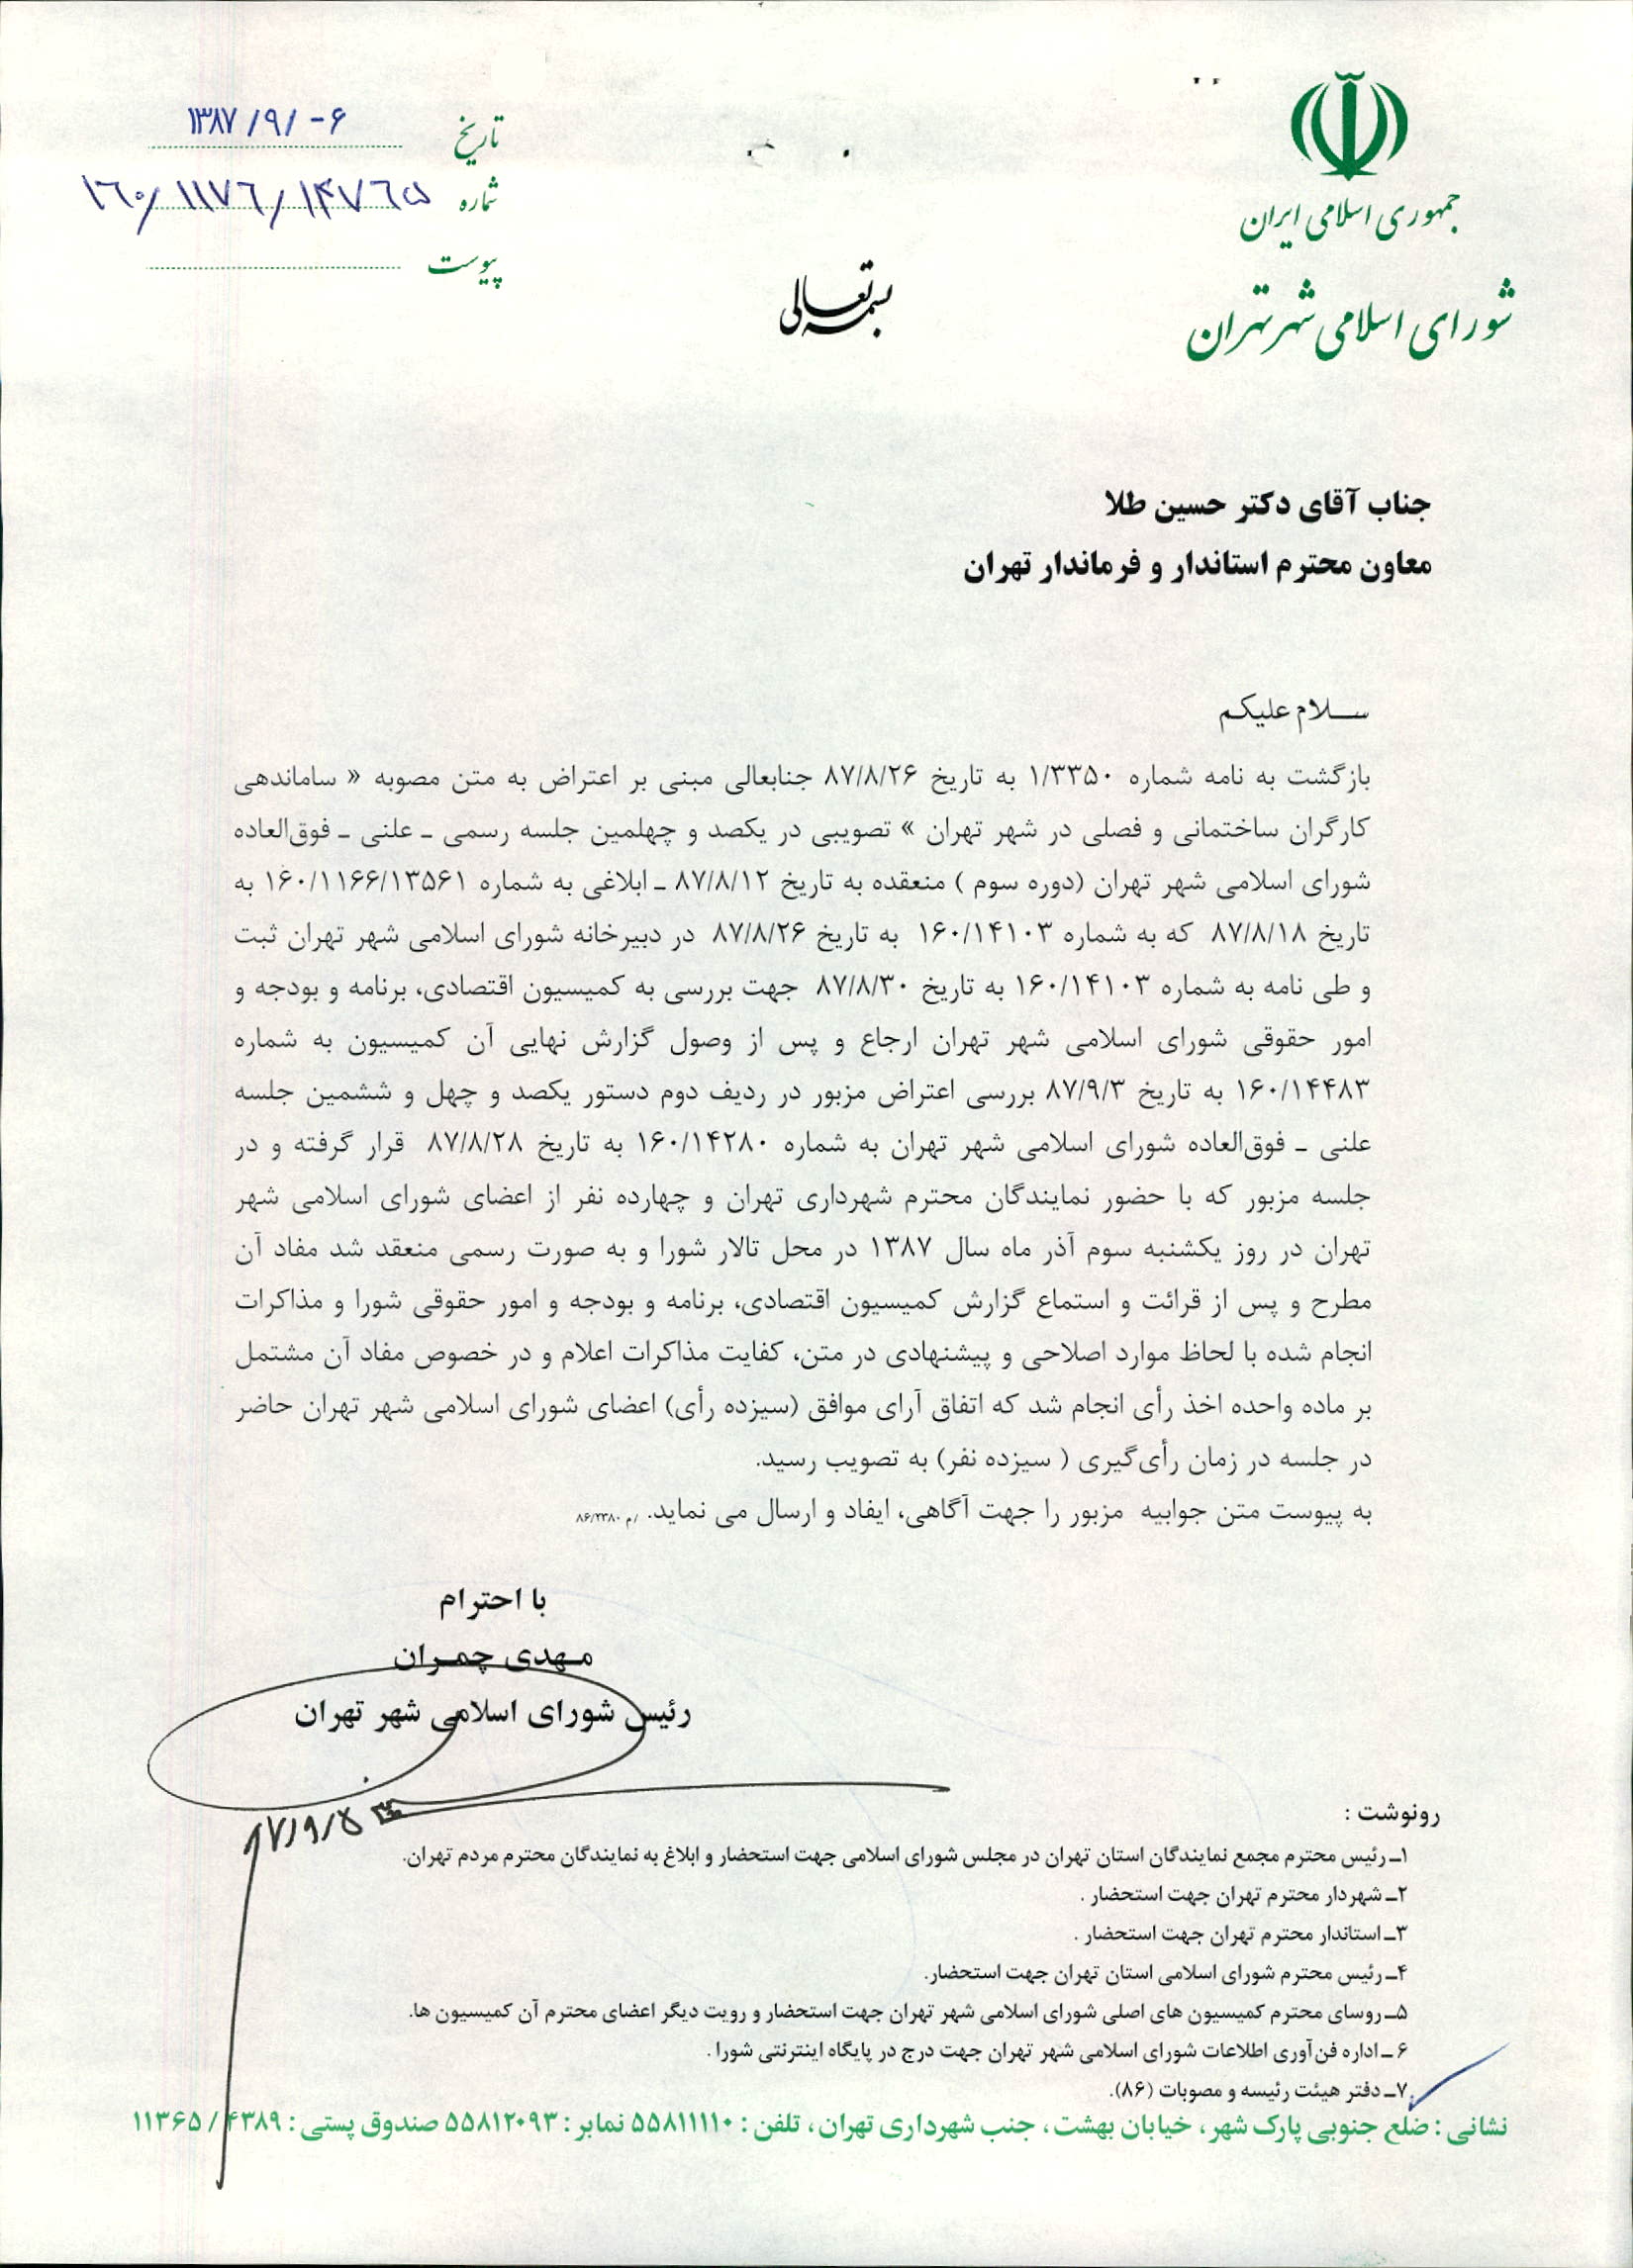 جمهوری اسلامی ایران
شورای اسلامی شهر تهران
تاریخ ۱۳۸۷/۹/-۶
شماره ۱۶۰/۱۱۷۶/۱۴۷۶۵
پیوست
بسمه تعالی
جناب آقای دکتر حسین طلا
معاون محترم استاندار و فرماندار تهران
ســلام علیکم
بازگشت به نامه شماره ۱/۳۳۵۰ به تاریخ ۸۷/۸/۲۶ جنابعالی مبنی بر اعتراض به متن مصوبه « ساماندهی
کارگران ساختمانی و فصلی در شهر تهران » تصویبی در یکصد و چهلمین جلسه رسمی ـ علنی ـ فوق‌العاده
شورای اسلامی شهر تهران (دوره سوم ) منعقده به تاریخ ۸۷/۸/۱۲ ـ ابلاغی به شماره ۱۶۰/۱۱۶۶/۱۳۵۶۱ به
تاریخ ۸۷/۸/۱۸ که به شماره ۱۶۰/۱۴۱۰۳ به تاریخ ۸۷/۸/۲۶ در دبیرخانه شورای اسلامی شهر تهران ثبت
و طی نامه به شماره ۱۶۰/۱۴۱۰۳ به تاریخ ۸۷/۸/۳۰ جهت بررسی به کمیسیون اقتصادی، برنامه و بودجه و
امور حقوقی شورای اسلامی شهر تهران ارجاع و پس از وصول گزارش نهایی آن کمیسیون به شماره
۱۶۰/۱۴۴۸۳ به تاریخ ۸۷/۹/۳ بررسی اعتراض مزبور در ردیف دوم دستور یکصد و چهل و ششمین جلسه
علنی ـ فوق‌العاده شورای اسلامی شهر تهران به شماره ۱۶۰/۱۴۲۸۰ به تاریخ ۸۷/۸/۲۸ قرار گرفته و در
جلسه مزبور که با حضور نمایندگان محترم شهرداری تهران و چهارده نفر از اعضای شورای اسلامی شهر
تهران در روز یکشنبه سوم آذر ماه سال ۱۳۸۷ در محل تالار شورا و به صورت رسمی منعقد شد مفاد آن
مطرح و پس از قرائت و استماع گزارش کمیسیون اقتصادی، برنامه و بودجه و امور حقوقی شورا و مذاکرات
انجام شده با لحاظ موارد اصلاحی و پیشنهادی در متن، کفایت مذاکرات اعلام و در خصوص مفاد آن مشتمل
بر ماده واحده اخذ رأی انجام شد که اتفاق آرای موافق (سیزده رأی) اعضای شورای اسلامی شهر تهران حاضر
در جلسه در زمان رأی‌گیری ( سیزده نفر) به تصویب رسید.
به پیوست متن جوابیه مزبور را جهت آگاهی، ایفاد و ارسال می نماید. /م ۸۶/۲۳۸۰
با احترام
مـهدی چمـران
رئیس شورای اسلامی شهر تهران
۸۷/۹/۵
رونوشت :
۱ـ رئیس محترم مجمع نمایندگان استان تهران در مجلس شورای اسلامی جهت استحضار و ابلاغ به نمایندگان محترم مردم تهران.
۲ـ شهردار محترم تهران جهت استحضار .
۳ـ استاندار محترم تهران جهت استحضار .
۴ـ رئیس محترم شورای اسلامی استان تهران جهت استحضار.
۵ـ روسای محترم کمیسیون های اصلی شورای اسلامی شهر تهران جهت استحضار و رویت دیگر اعضای محترم آن کمیسیون ها.
۶ ـ اداره فن‌آوری اطلاعات شورای اسلامی شهر تهران جهت درج در پایگاه اینترنتی شورا .
۷ـ دفتر هیئت رئیسه و مصوبات (۸۶).
نشانی : ضلع جنوبی پارک شهر ، خیابان بهشت ، جنب شهرداری تهران ، تلفن : ۵۵۸۱۱۱۱۰ نمابر : ۵۵۸۱۲۰۹۳ صندوق پستی : ۴۳۸۹ / ۱۱۳۶۵